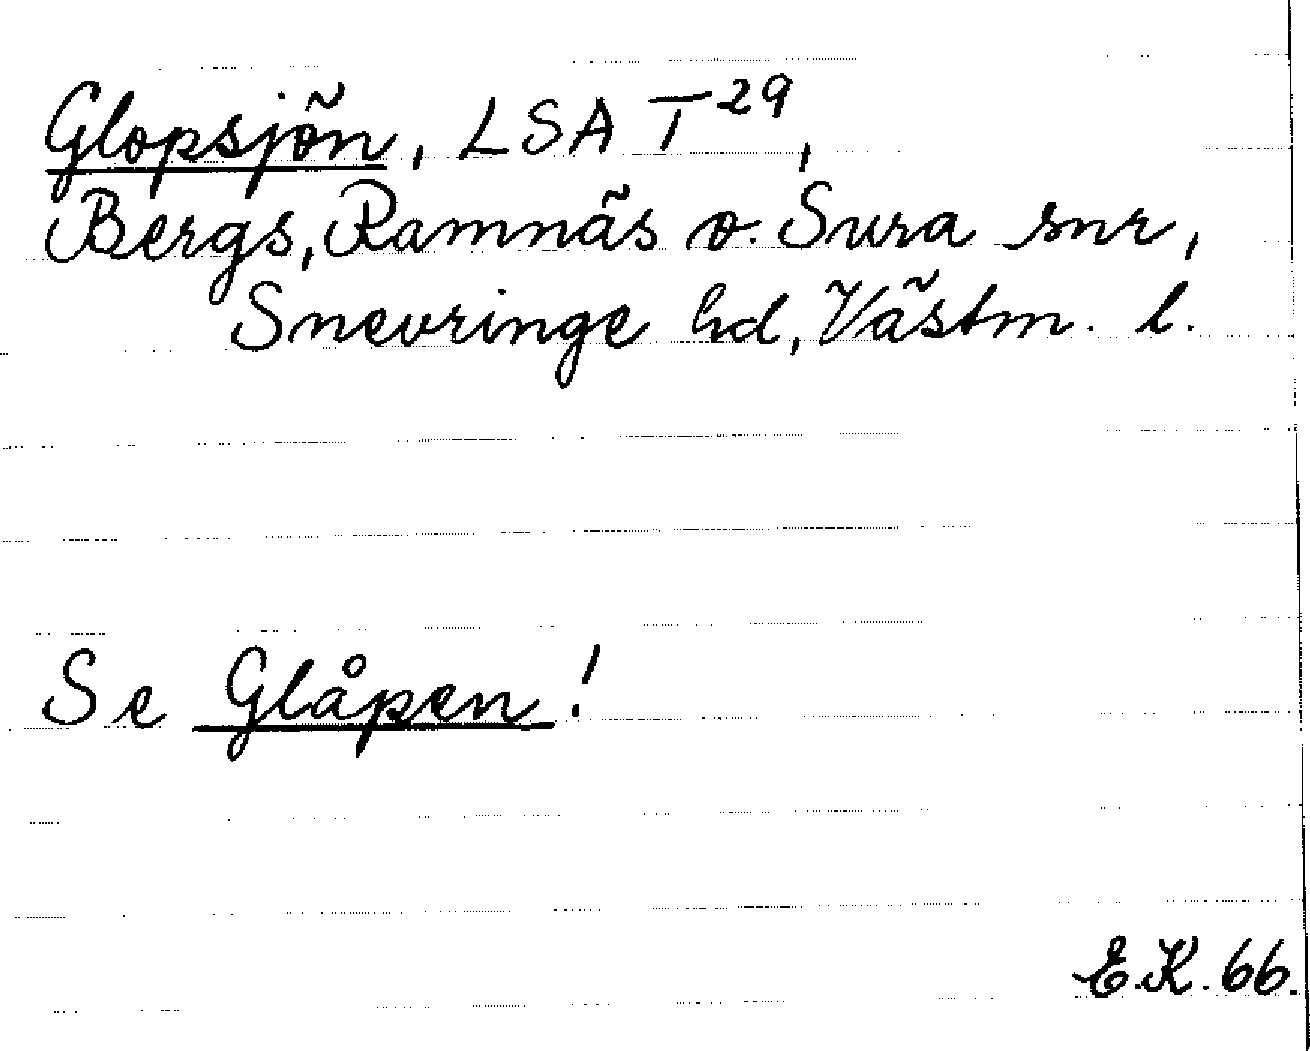 Glopsjön, LSA T 29,
Bergs, Ramnäs o. Sura snr,
Snevringe hd, Västm. l.
Se Glåpen!
E.K. 66.